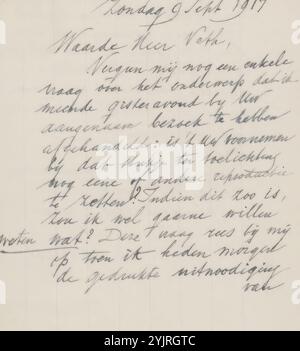 Zondag 9 Sept 1917
Waarde Heer Veth,
Vergun mij nog een enkele
vraag over het onderwerp dat ik
meende gisteravond bij Uw
aangenaam bezoek te hebben
afgehandeld: is 't Uw voornemen
bij dat ter toelichting
nog eene op andere reproductie
te zetten? Indien dit zoo is,
zou ik wel gaarne willen
weten wat? Deze vraag rees bij mij
op toen ik heden morgen
de gedrukte uitnoodiging
van
alamy
Image ID: 2YJRGTC
www.alamy.com